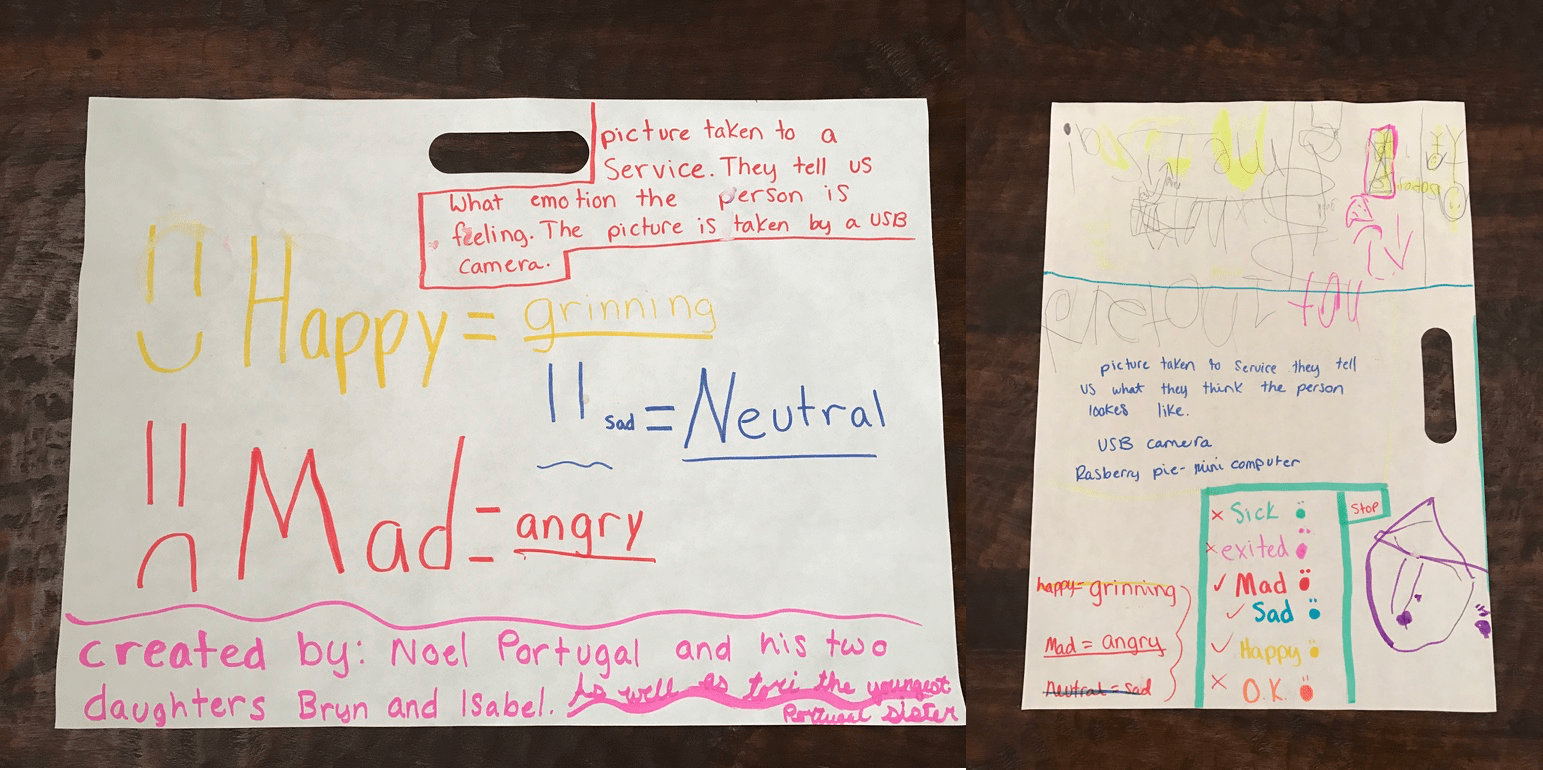 picture taken to a
Service. They tell us
What emotion the person is
feeling. The picture is taken by a USB
camera.
Happy = grinning
sad = Neutral
Mad = angry
created by: Noel Portugal and his two
daughters Bryn and Isabel. As well as tori the youngest
Portugal sister
you
picture taken to Service they tell
us what they think the person
lookes like.
USB camera
Rasberry pie- mini computer
× Sick
Stop
× exited
✓ Mad
✓ Sad
✓ Happy
× O.K.
happy = grinning
Mad = angry
Neutral = sad